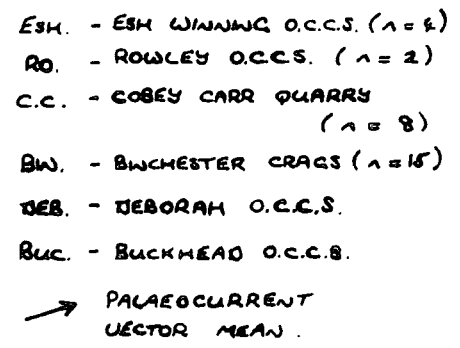 ESH. - ESH WINNING O.C.C.S. (n = 4)
RO. - ROWLEY O.C.C.S. (n = 2)
C.C. - COBEY CARR QUARRY
(n = 8)
BIN. - BINCHESTER CRAGS (n = 15)
DEB. - DEBORAH O.C.C.S.
BUC. - BUCKHEAD O.C.C.S.
PALAEOCURRENT
VECTOR MEAN.